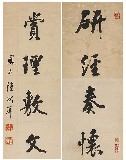 研經奏懷
賞理敷文